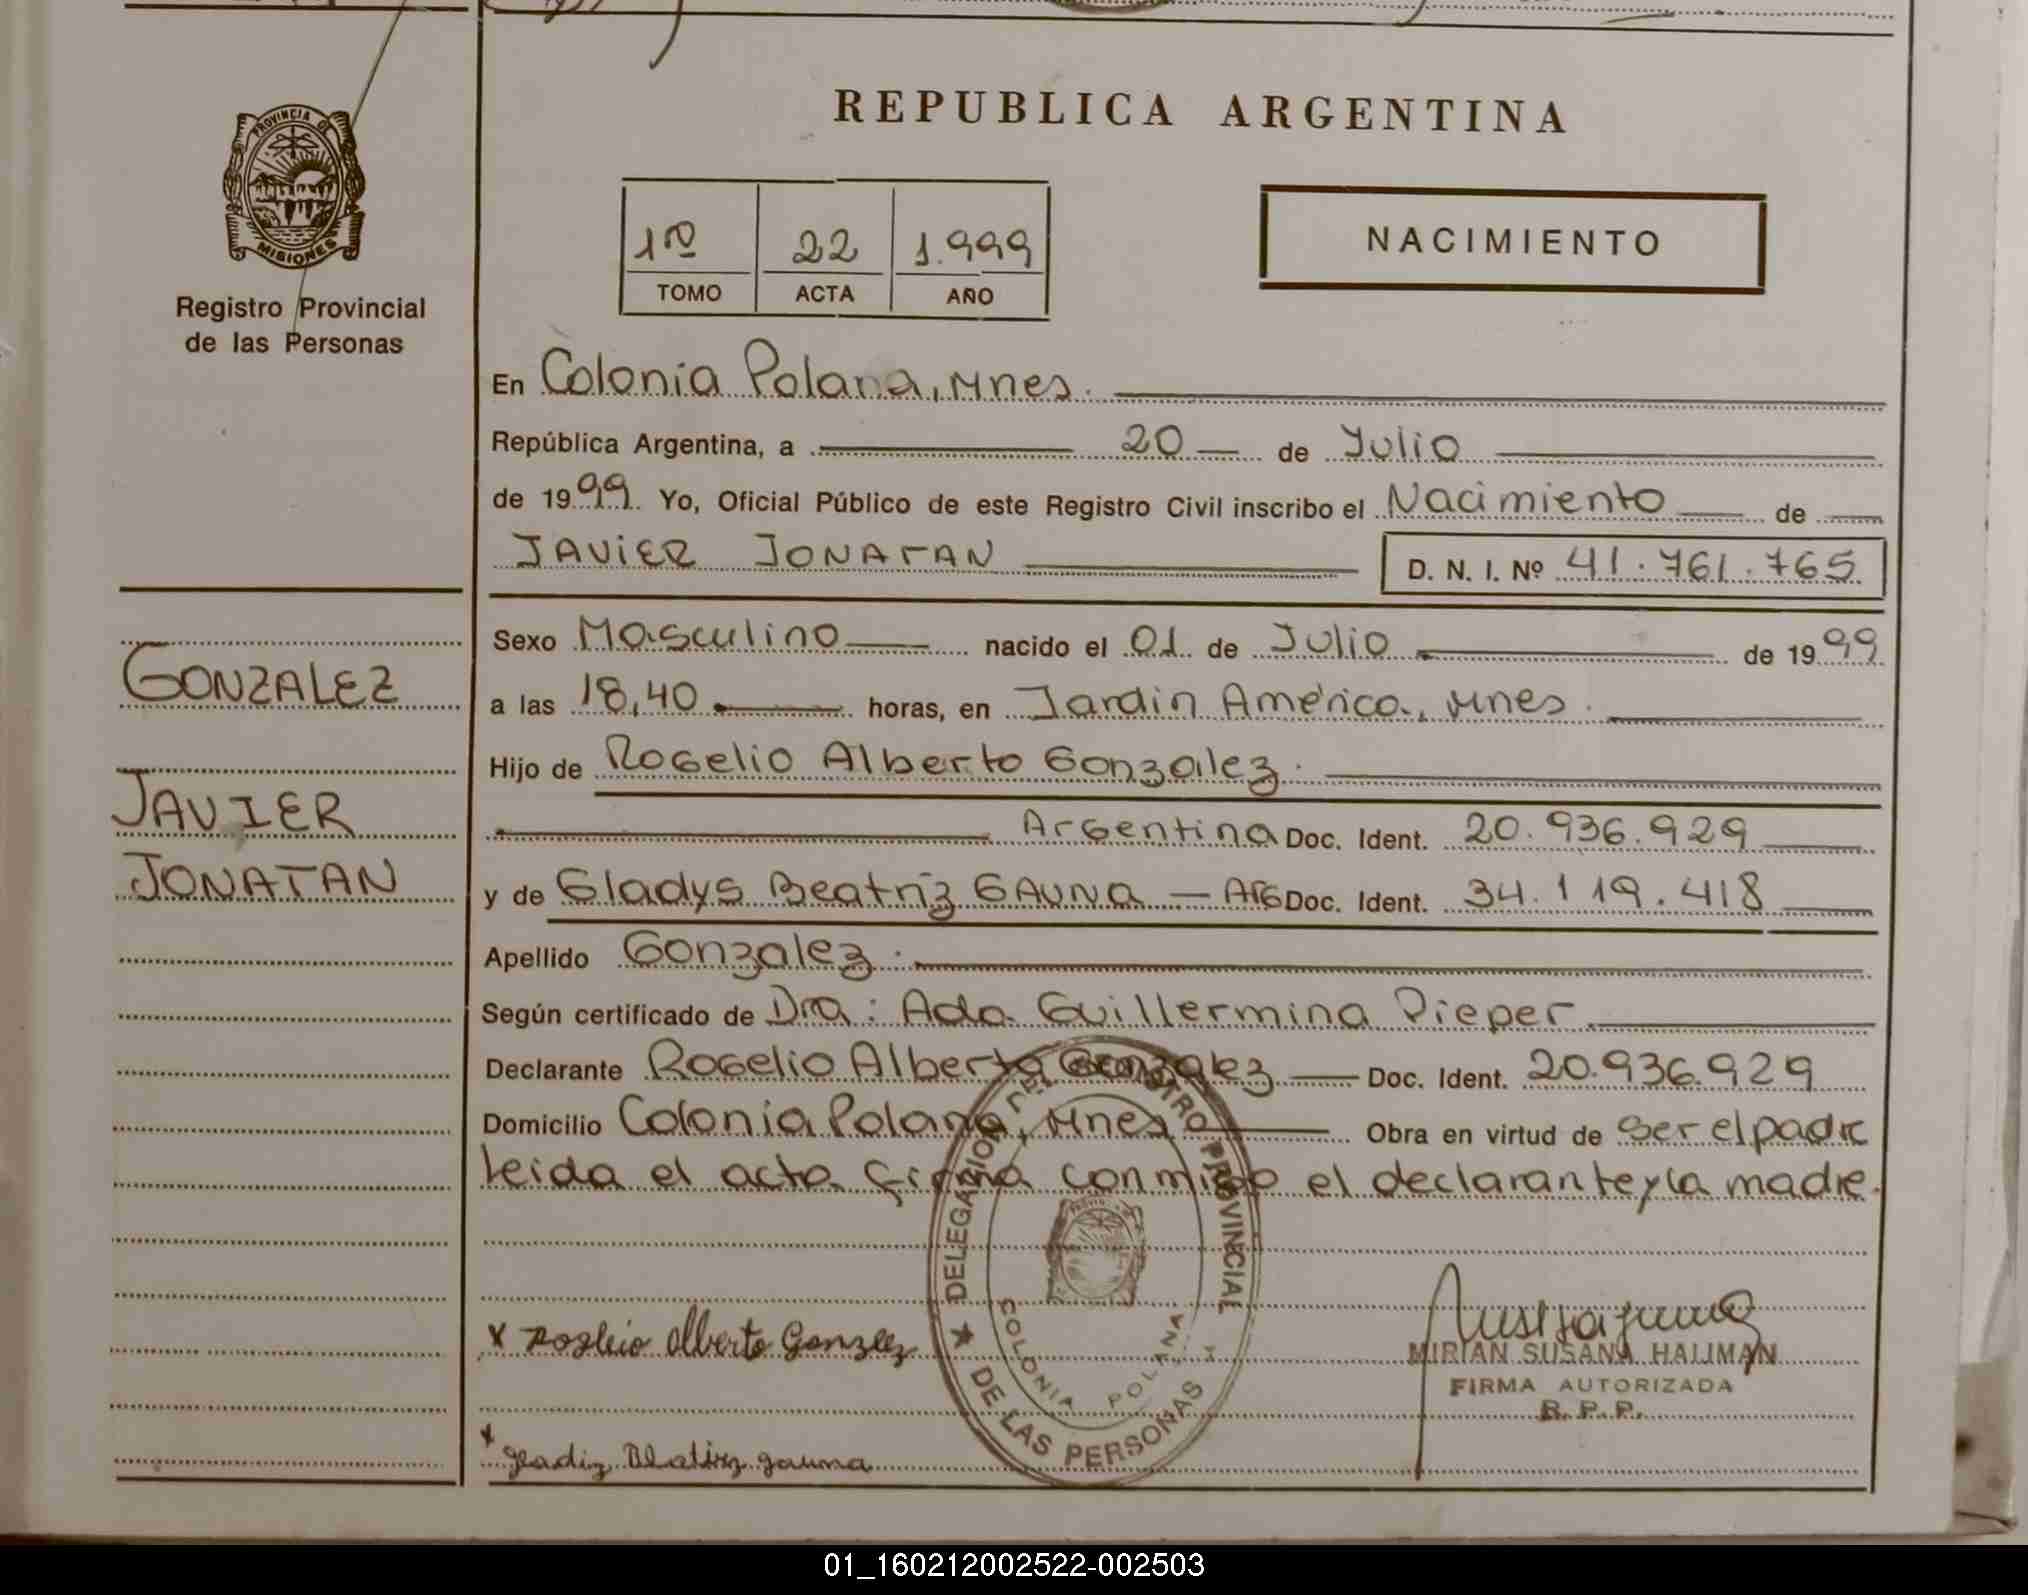 REPUBLICA ARGENTINA
PROVINCIA DE
MISIONES
Registro Provincial
de las Personas
1ro 22 1.999
TOMO ACTA AÑO
NACIMIENTO
En Colonia Polana, Mnes.
República Argentina, a 20 de Julio
de 1999. Yo, Oficial Público de este Registro Civil inscribo el Nacimiento de
JAVIER JONATAN D. N. I. Nº 41.761.765
Sexo Masculino nacido el 01 de Julio de 1999
a las 18,40 horas, en Jardin América, Mnes.
Hijo de Rogelio Alberto Gonzalez.
Argentina Doc. Ident. 20.936.929
y de Gladys Beatriz GAUNA - Arg Doc. Ident. 34.119.418
Apellido Gonzalez.
Según certificado de Dra: Ada Guillermina Pieper
Declarante Rogelio Alberto Gonzalez Doc. Ident. 20.936.929
Domicilio Colonia Polana, Mnes Obra en virtud de ser el padre
leida el acta firma conmigo el declarante y la madre.
GONZALEZ
JAVIER
JONATAN
DELEGACION DEL REGISTRO PROVINCIAL
DE LAS PERSONAS
COLONIA POLANA
x Rogleio Alberto Gonzlez
x gladiz Blatirz gauna
MIRIAN SUSANA HAUMAN
FIRMA AUTORIZADA
R. P. P.
01_160212002522-002503